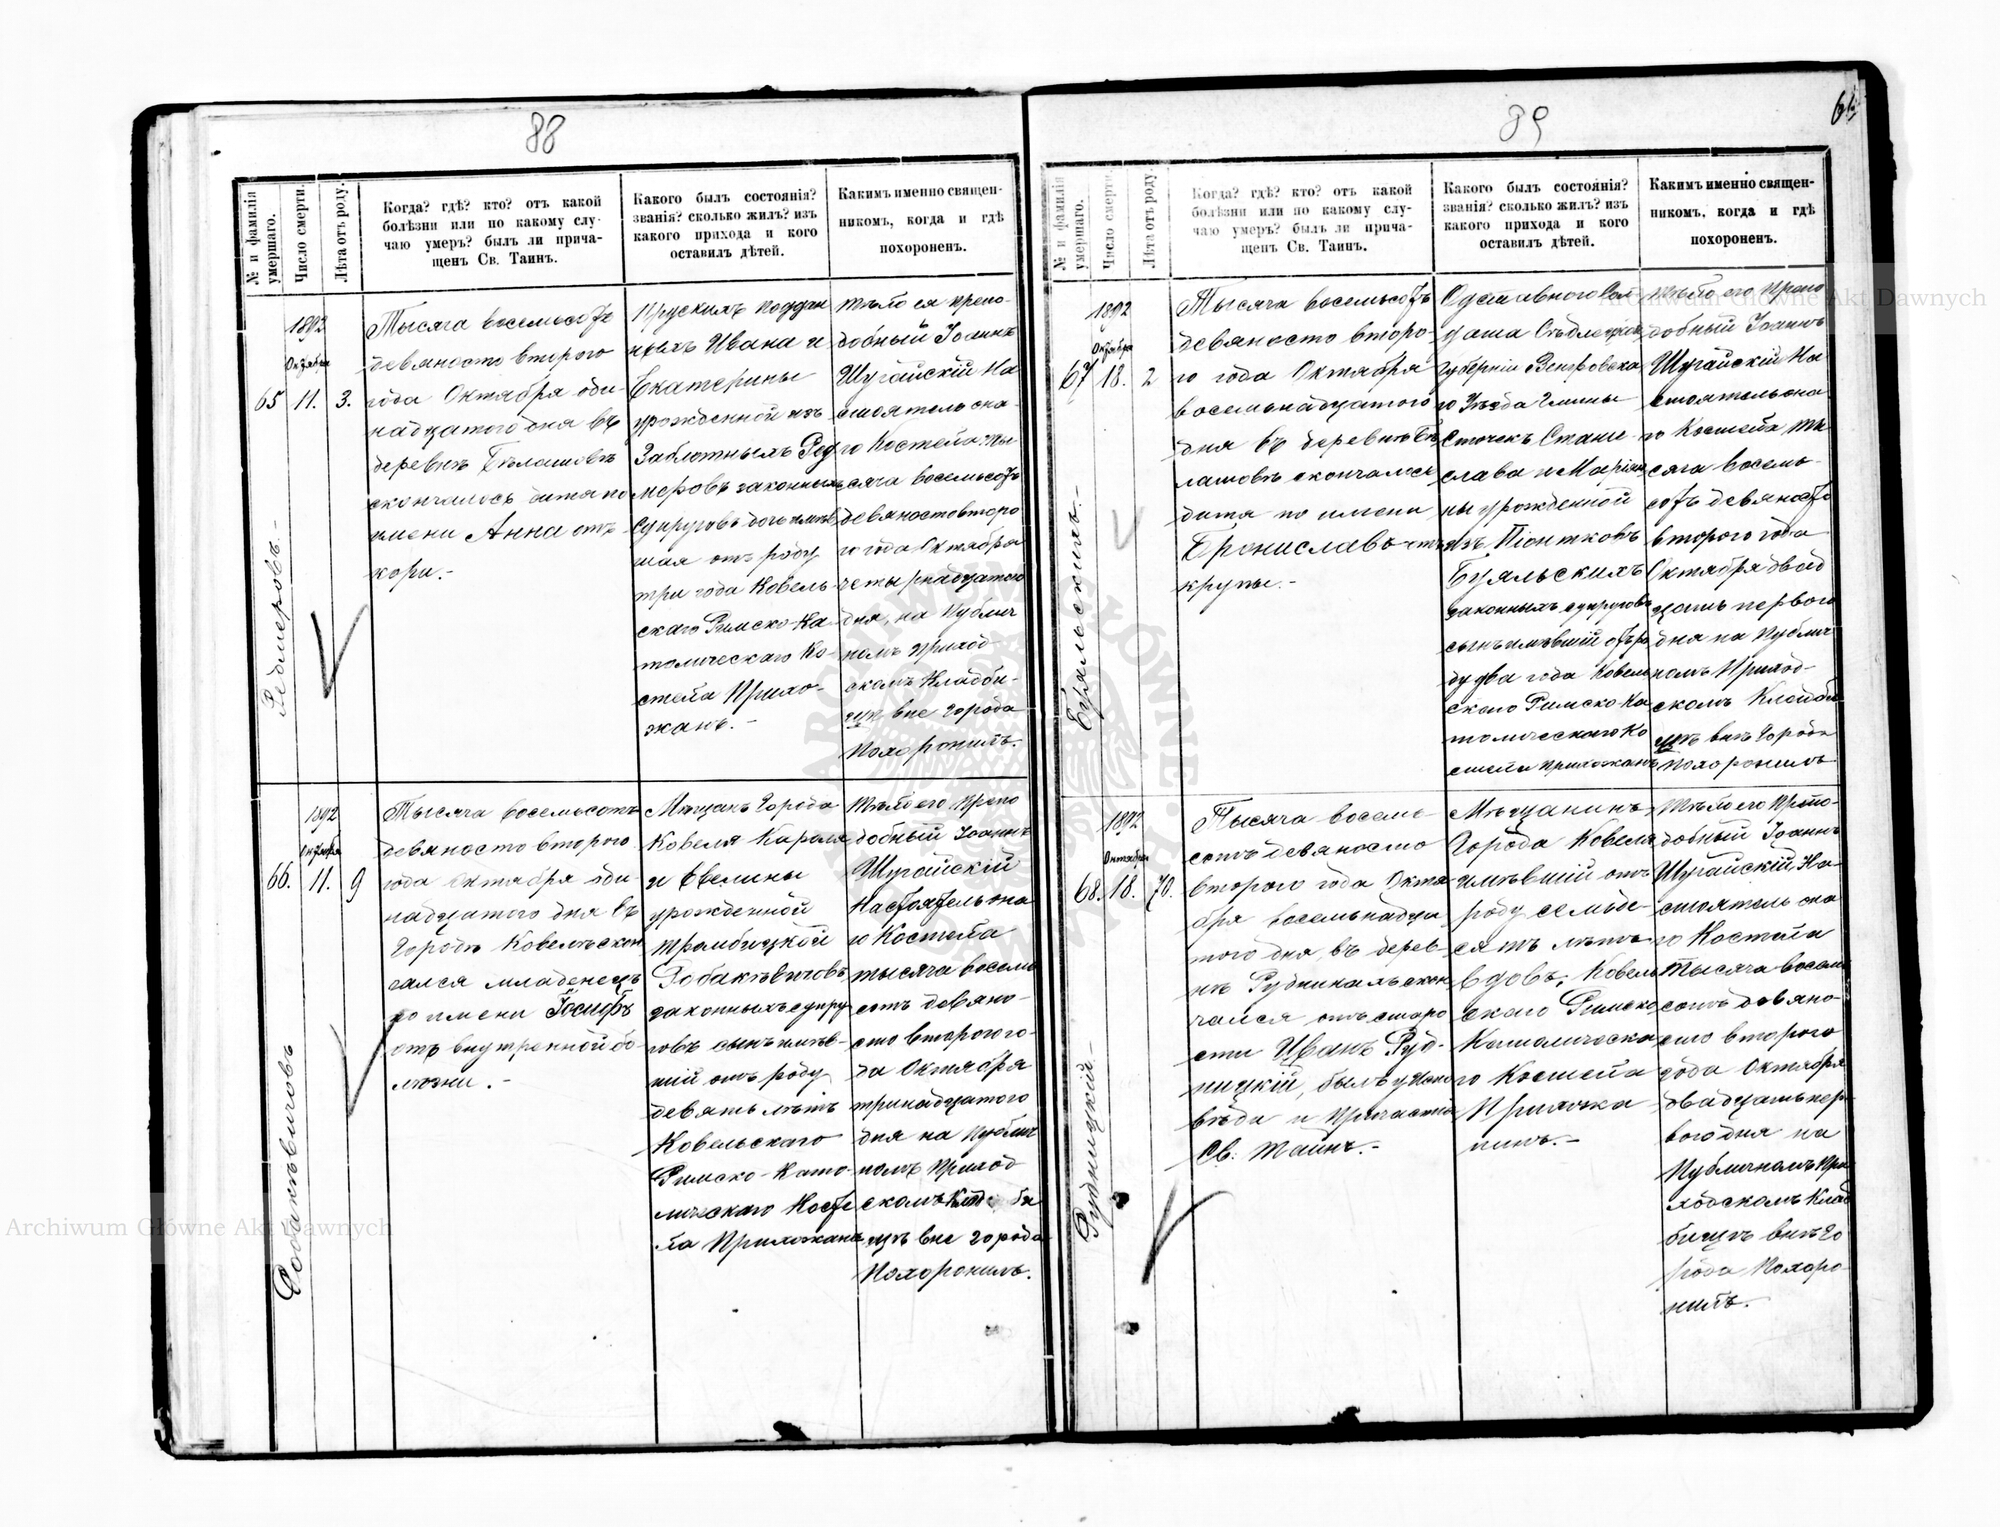 88
№ и фамилія умершаго.
Число смерти.
Лѣта отъ роду.
Когда? гдѣ? кто? отъ какой
болѣзни или по какому слу-
чаю умеръ? былъ ли прича-
щенъ Св. Таинъ.
Какого былъ состоянія?
званія? сколько жилъ? изъ
какого прихода и кого
оставилъ дѣтей.
Каким­ъ именно священ-
никомъ, когда и гдѣ
похороненъ.
65
Редмеровъ.-
1892
Октября
11.
3.
Тысяча восемьсотъ
девяносто второго
года Октября оди-
надцатого дня въ
деревнѣ Бѣлашовѣ
скончалось дитя по
имени Анна отъ
кори.-
Прускихъ поддан
ныхъ Ивана и
Екатерины
урожденной изъ
Заблотныхъ Ред
меровъ законныхъ
супруговъ дочь имѣв
шая отъ роду
три года Ковель-
скаго Римско-Ка-
толическаго Ко-
стела Прихо-
жанъ.-
Тѣло ея препо-
добный Іоаннъ
Шугайскій На
стоятель она-
го Костела ты
сяча восемьсотъ
девяносто второ
го года Октября
четырнадцатого
дня, на Публич
номъ приход-
скомъ Кладби-
щѣ вне города
Похоронилъ.
66.
Робакѣвичовъ
1892
Октября
11.
9
Тысяча восемьсотъ
девяносто второго
года Октября оди-
надцатого дня въ
Городѣ Ковелѣ скон
чался младенецъ
по имени Іосифъ
отъ внутренной бо-
лѣзни.-
Мѣщанъ Города
Ковеля Кароля
и Евелины
урожденной
Трамбицкой
Робакѣвичовъ
законныхъ супру
говъ сынъ имѣв-
шій отъ роду
девять лѣтъ
Ковельскаго
Римско-Като-
лическаго Косте
ла Прихожанъ
Тѣло его препо
добный Іоаннъ
Шугайскій
Настоятель она
го Костела
тысяча восемь
сотъ девяно-
сто второго го-
да Октября
тринадцатого
дня на Публич
номъ приход
скомъ Кладби
щѣ вне города
Похоронилъ.
89
№ и фамилія умершаго.
Число смерти.
Лѣта отъ роду.
Когда? гдѣ? кто? отъ какой
болѣзни или по какому слу-
чаю умеръ? былъ ли прича-
щенъ Св. Таинъ.
Какого былъ состоянія?
званія? сколько жилъ? изъ
какого прихода и кого
оставилъ дѣтей.
Какимъ именно священ-
никомъ, когда и гдѣ
похороненъ.
67
Буяльскихъ.-
1892
Октября
18.
2
Тысяча восемьсотъ
девяносто второ-
го года Октября
восемьнадцатого
дня въ деревнѣ Бѣ
лашовѣ скончалось
дитя по имени
Брониславъ отъ
крупы.-
Отставного Сол
дата Сѣдлецкой
Губерніи Венгровска
го Уѣзда Гмины
Сточекъ Стани
слава и Маріан
ны урожденной
изъ Піонтковъ
Буяльскихъ
законныхъ супруговъ
сынъ имѣвшій отъ ро
ду два года Ковель
скаго Римско-Ка
толическаго Ко
стела прихожанъ
Тѣло его препо
добный Іоаннъ
Шугайскій На
стоятель она
го Костела ты
сяча восемь-
сотъ девяносто
второго года
Октября двад
цать первого
дня на Публич
номъ Приход-
скомъ Кладби
щѣ внѣ Города
Похоронилъ
68.
Рудницкій.-
1892
Октября
18.
70.
Тысяча восемь
сотъ девяносто
второго года Октя
бря восемьнадца
того дня, въ дерев-
нѣ Рудникахъ скон
чался отъ старо
сти Иванъ Руд-
ницкій, былъ у Испо
вѣди и Причастія
Св. Таинъ.-
Мѣщанинъ
Города Ковеля
имѣвшій отъ
роду семьде-
сятъ лѣтъ
вдовъ; Ковель
скаго Римско
Католическа
го Костела
Прихожа
нинъ.-
Тѣло его препо-
добный Іоаннъ
Шугайскій, На-
стоятель она
го Костела
тысяча восемь
сотъ девяно-
сто второго
года Октября
двадцать пер
вого дня на
Публичномъ При
ходскомъ Клад
бищѣ внѣ Го
рода Похоро-
нилъ.
Archiwum Główne Akt Dawnych
Archiwum Główne Akt Dawnych